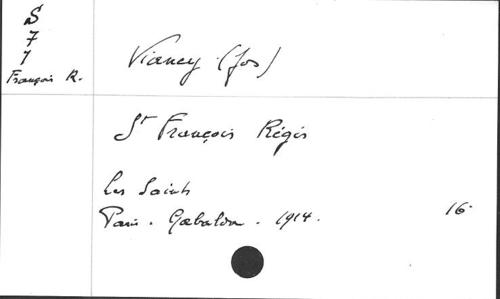 S
7
7
François R.
Vianey (Jos)
St François Régis
Les Saints
Paris. Gabalda. 1914.
16.